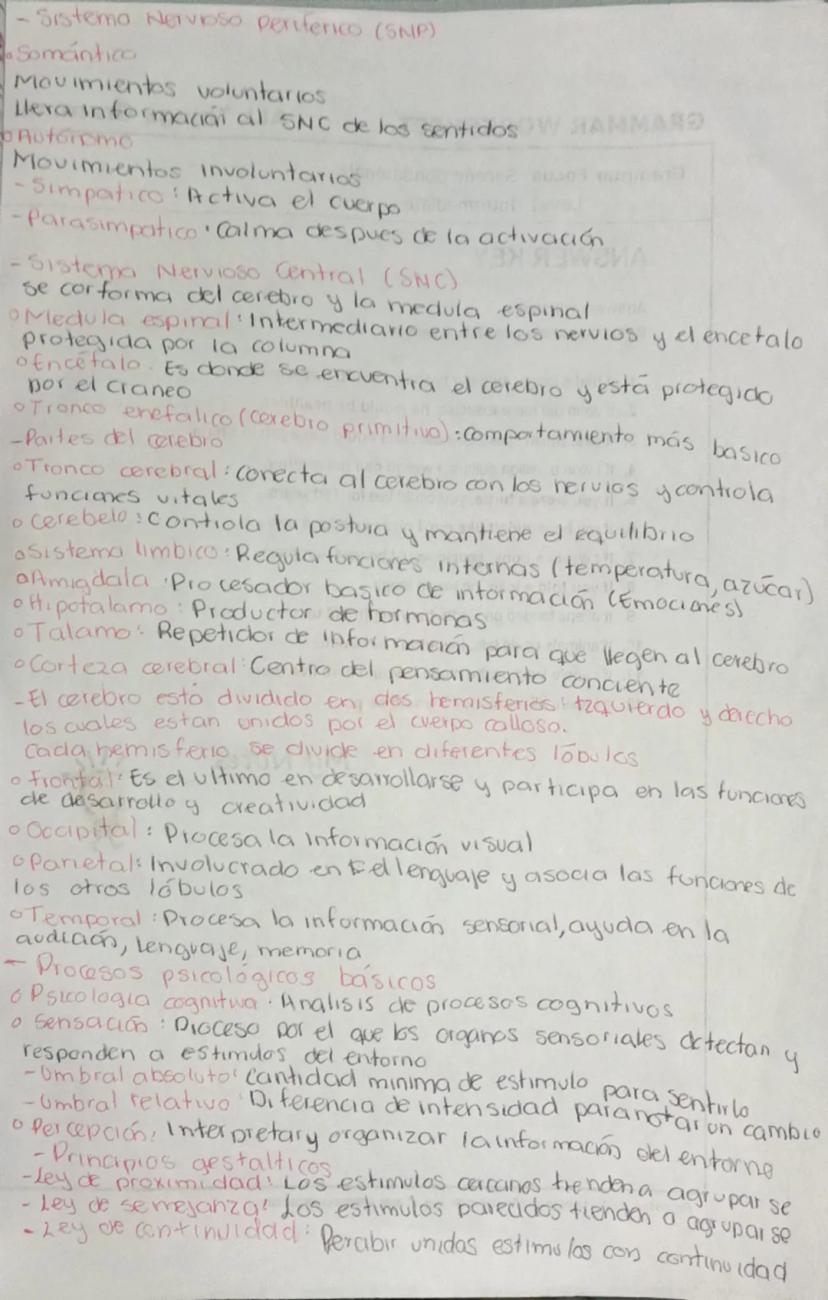 - Sistema Nervioso Periferico (SNP)
o Somántico
Movimientos voluntarios
Lleva información al SNC de los sentidos
o Autónomo
Movimientos Involuntarios
- Simpatico: Activa el cuerpo
- Parasimpatico: Calma despues de la activación
- Sistema Nervioso Central (SNC)
se corforma del cerebro y la medula espinal
o Medula espinal: Intermediario entre los nervios y el encefalo
protegida por la columna
o Encéfalo: Es donde se encuentra el cerebro y está protegido
por el craneo
o Tronco enefalico (cerebro primitivo): comportamiento más basico
- Partes del cerebro
o Tronco cerebral: conecta al cerebro con los nervios y controla
funciones vitales
o cerebelo: controla la postura y mantiene el equilibrio
o Sistema limbico: Regula funciones internas (temperatura, azúcar)
o Amigdala: Procesador basico de información (Emociones)
o Hipotalamo: Productor de hormonas
o Talamo: Repetidor de información para que llegen al cerebro
o Corteza cerebral: Centro del pensamiento conciente
- El cerebro está dividido en dos hemisferios: Izquierdo y derecho
los cuales estan unidos por el cuerpo calloso.
Cada hemisferio se divide en diferentes lóbulos
o frontal: Es el ultimo en desarrollarse y participa en las funciones
de desarrollo y creatividad
o Occipital: Procesa la información visual
o Parietal: Involucrado en el lenguaje y asocia las funciones de
los otros lóbulos
o Temporal: Procesa la información sensorial, ayuda en la
audición, lenguaje, memoria
- Procesos psicológicos básicos
o Psicologia cognitiva: Analisis de procesos cognitivos
o Sensación: Proceso por el que los organos sensoriales detectan y
responden a estimulos del entorno
- Umbral absoluto: cantidad minima de estimulo para sentirlo
- Umbral relativo: Diferencia de intensidad para notar un cambio
o Percepción: Interpretar y organizar la información del entorno
- Principios gestalticos
- Ley de proximidad: Los estimulos cercanos tienden a agruparse
- Ley de semejanza: Los estimulos parecidos tienden a agruparse
- Ley de continuidad: Percibir unidas estimulos con continuidad